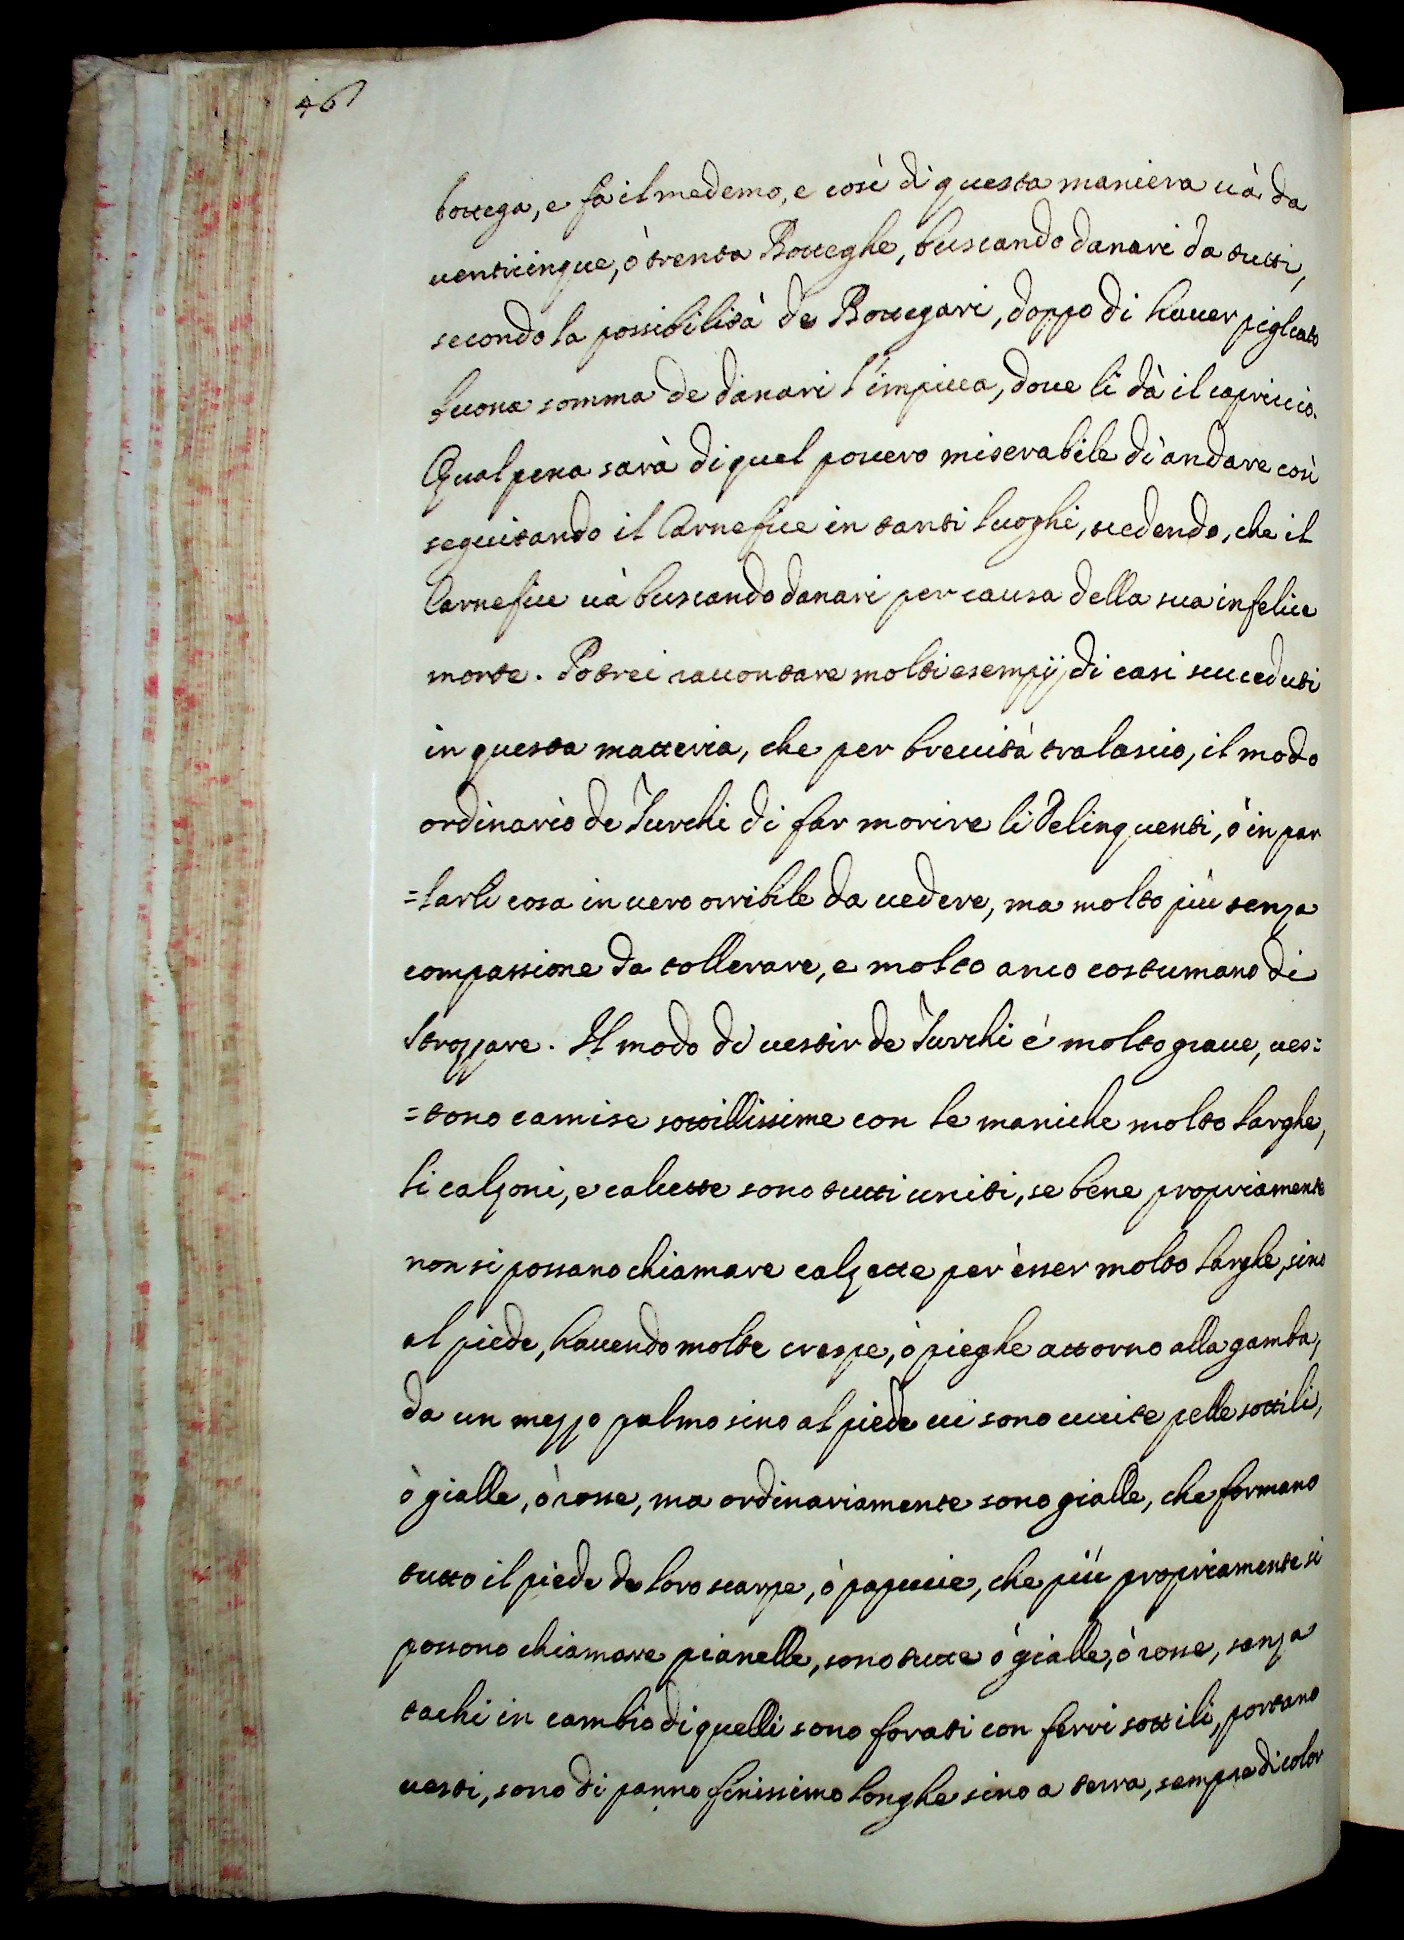 46
bottega, e fà il medemo, e così di questa maniera uà da
uenticinque, ò trenta Botteghe, buscando danari da tutti,
secondo la possibilità de Bottegari, doppo di hauer pigliato
buona somma de danari l'impicca, doue li dà il capriccio.
Qual pena sarà di quel pouero miserabile di andare così
seguitando il Carnefice in tanti luoghi, uedendo, che il
Carnefice uà buscando danari per causa della sua infelice
morte. Potrei raccontare molti esempij di casi succeduti
in questa matteria, che per breuità tralascio, il modo
ordinario de Turchi di far morire li Delinquenti, è in pa
=larli cosa in uero orribile da uedere, ma molto più senza
compassione da tollerare, e molto anco costumano di
Strozzare. Il modo di uestir de Turchi è molto graue, ues=
=tono camise sottillissime con le maniche molto larghe,
li calzoni, e calzette sono tutti uniti, se bene propriamente
non si possano chiamare calzette per esser molto larghe, sino
al piede, hauendo molte crespe, ò pieghe attorno alla gamba,
da un mezzo palmo sino al piede ui sono cucite pelle sottili,
ò gialle, ò rosse, ma ordinariamente sono gialle, che formano
tutto il piede de loro scarpe, ò papuccie, che più propriamente si
possono chiamare pianelle, sono tutte ò gialle, ò rosse, senza
tachi in cambio di quelli sono forati con ferri sottili, portano
uesti, sono di panno finissimo longhe sino a terra, sempre di color